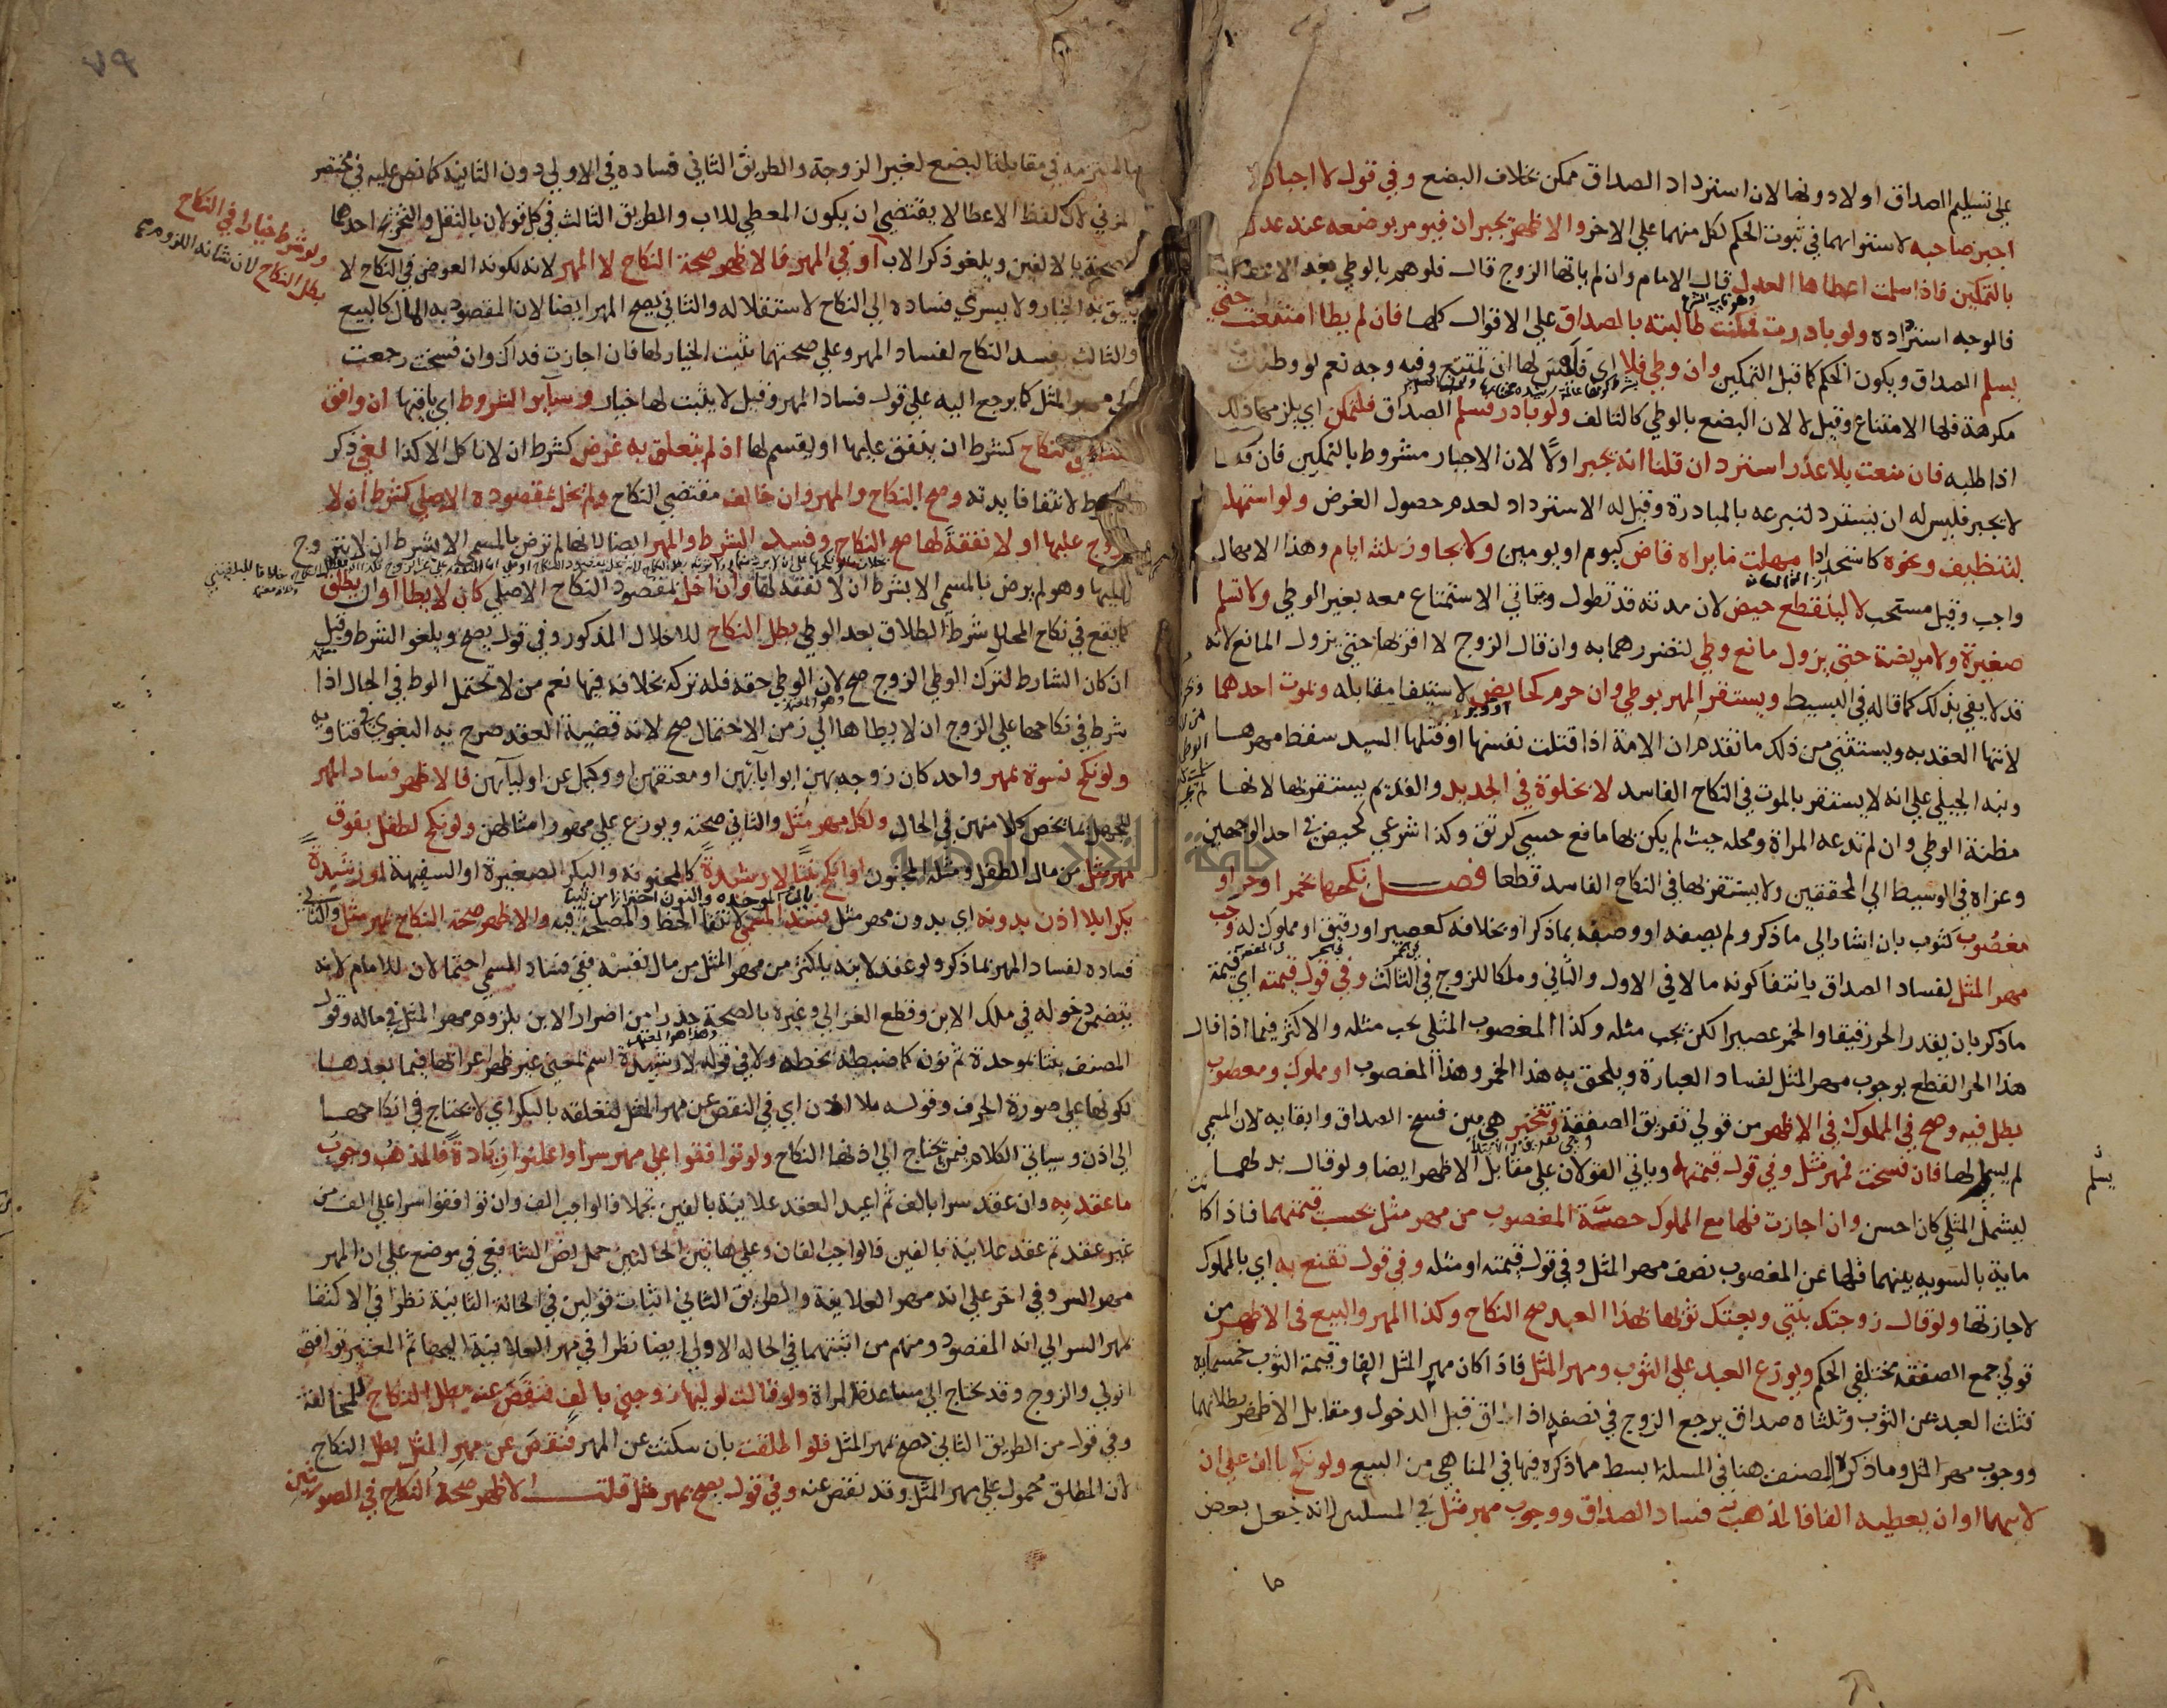 علي تسليم الصداق اولا دونها لان استرداد الصداق ممكن بخلاف البضع وفي قول لا اجبار
اجبر صاحبه لاستوائهما في ثبوت الحكم لكل منهما علي الاخر والاظهر يجبران فيومر بوضعه عند عدل
بالتمكين فاذا سلمت اعطاها العدل قال الامام وان لم ياتها الزوج قال فلوهم بالوطي بعد الاعطا
فالوجه استرداده ولو بادرت فمكنت طالبته بالصداق علي الاقوال كلها فان لم يطا امتنعت حتي
يسلم الصداق ويكون الحكم كما قبل التمكين وان وطي فلا اي فليس لها ان تمتنع وفيه وجه نعم لو وطئت
مكرهة فلها الامتناع وقيل لا لان البضع بالوطي كالتالف ولو بادر فسلم الصداق فلتمكن اي يلزمها ذلك
اذا طلبه فان منعت بلا عذر استرد ان قلنا انه يجبر اولا لان الاجبار مشروط بالتمكين فان قلنا
لا يجبر فليس له ان يسترد لتبرعه بالمبادرة وقيل له الاسترداد لعدم حصول الغرض ولو استمهلت
لتنظيف ونحوه كاستحداد امهلت ما يراه قاض كيوم او يومين ولا يجاوز ثلثة ايام وهذا الامهال
واجب وقيل مستحب لا لينقطع حيض لان مدته قد تطول ويتاتي الاستمتاع معه بغير الوطي ولا تسلم
صغيرة ولا مريضة حتي يزول مانع وطي لتضررهما به وان قال الزوج لا اقربها حتي يزول المانع لانه
قد لا يفي بذلك كما قاله في البسيط ويستقر المهر بوطي وان حرم كحايض لاستيفا مقابله وبموت احدهما
لانتها العقد به ويستثني من ذلك ما تقدم ان الامة اذا قتلت نفسها او قتلها السيد سقط مهرها
ونبه الجيلي علي انه لا يستقر بالموت في النكاح الفاسد لا بخلوة في الجديد والقديم يستقر بها لانها
مظنة الوطي وان لم تدعه المراة ومحله حيث لم يكن بها مانع حسي كرتق وكذا شرعي كحيض في احد الوجهين
وعزاه في الوسيط الي المحققين ولا يستقر بها في النكاح الفاسد قطعا فصل نكحها بخمر او حر او
مغصوب كثوب بان اشار الي ما ذكر ولم يصفه او وصفه بما ذكر او بخلافه كعصير او رقيق او مملوك له وجب
مهر المثل لفساد الصداق بانتفا كونه مالا في الاول والثاني وملكا للزوج في الثالث وفي قول قيمته اي قيمة
ما ذكر بان يقدر الحر رقيقا والخمر عصيرا لكن يجب مثله وكذا المغصوب المثلي يجب مثله والاكثر فيما اذا قال
هذا الحر القطع بوجوب مهر المثل لفساد العبارة ويلحق به هذا الخمر وهذا المغصوب او مملوك ومغصوب
بطل فيه وصح في المملوك في الاظهر من قولي تفريق الصفقة وتتخير هي بين فسخ الصداق وابقايه لان المسمي
لم يسلم لها فان فسخت فمهر مثل وفي قول قيمتهما وياتي القولان علي مقابل الاظهر ايضا ولو قال بدلهما
ليشمل المثلي كان احسن وان اجازت فلها مع المملوك حصة المغصوب من مهر مثل بحسب قيمتهما فاذا كانت
ماية بالسويه بينهما فلها عن المغصوب نصف مهر المثل وفي قول قيمته او مثله وفي قول تقنع به اي بالمملوك
لاجازتها ولو قال زوجتك بنتي وبعتك ثوبها بهذا العبد صح النكاح وكذا المهر والبيع في الاظهر من
قولي جمع الصفقة مختلفي الحكم ويوزع العبد علي الثوب ومهر المثل فاذا كان مهر المثل الفا وقيمة الثوب خمسماية
فثلث العبد عن الثوب وثلثاه صداق يرجع الزوج في نصفه اذا طلق قبل الدخول ومقابل الاظهر بطلانهما
ووجوب مهر المثل وما ذكره المصنف هنا في المسلة ابسط مما ذكره فيها في المناهي من البيع ولو نكح بالف علي ان
لابيها او ان يعطيه الفا فالمذهب فساد الصداق ووجوب مهر مثل في المسلتين لانه جعل بعض
ما
يسلم
ما التزمه في مقابلة البضع لغير الزوجة والطريق الثاني فساده في الاولي دون الثانية كما نص عليه في مختصر
المزني لان لفظ الاعطا لا يقتضي ان يكون المعطي للاب والطريق الثالث في كل قولان بالنقل والتخريج احدهما
الصحة بالالفين ويلغو ذكر الاب او في المهر فالاظهر صحة النكاح لا المهر لانه لكونه العوض في النكاح لا
يليق به الخيار ولا يسري فساده الي النكاح لاستقلاله والثاني يصح المهر ايضا لان المقصود به المال كالبيع
والثالث يفسد النكاح لفساد المهر وعلي صحتهما يثبت الخيار لها فان اجازت فذاك وان فسخت رجعت
الي مهر المثل كما يرجع اليه علي قول فساد المهر وقيل لا يثبت لها خيار وساير الشروط اي باقيها ان وافق
مقتضي النكاح كشرط ان ينفق عليها او يقسم لها او لم يتعلق به غرض كشرط ان لا تاكل الا كذا لغي ذكر
الشرط لانتفا فايدته وصح النكاح والمهر وان خالف مقتضي النكاح ولم يخل بمقصوده الاصلي كشرط ان لا
يتزوج عليها او لا نفقة لها صح النكاح وفسد الشرط والمهر ايضا لانها لم ترض بالمسمي الا بشرط ان لا يتزوج
عليها وهو لم يرض بالمسمي الا بشرط ان لا نفقة لها وان اخل بمقصود النكاح الاصلي كان لا يطا او ان يطلق
كما يقع في نكاح المحلل شرط الطلاق بعد الوطي بطل النكاح للاخلال المذكور وفي قول يصح ويلغو الشرط وقيل
ان كان الشارط لترك الوطي الزوج صح لان الوطي حقه فله تركه بخلافه فيها نعم من لا تحتمل الوط في الحال اذا
شرط في نكاحها علي الزوج ان لا يطاها الي زمن الاحتمال صح لانه قضية العقد صرح به البغوي في فتاويه
ولو نكح نسوة بمهر واحد كان زوجه بهن ابو ابايهن او معتقهن او وكيل عن اوليايهن فالاظهر فساد المهر
للجهل بما يخص كلا منهن في الحال ولكل مهر مثل والثاني صحته ويوزع علي مهور امثالهن ولو نكح لطفل بفوق
مهر مثل من مال الطفل ومثله المجنون او انكح بنتا لا رشيدة كالمجنونة والبكر الصغيرة او السفيهة او رشيدة
بكرا بلا اذن بدونه اي بدون مهر مثل فسد المسمي لانتفا الحظ والمصلحة فيه والاظهر صحة النكاح بمهر مثل والثاني
فساده لفساد المهر بما ذكر ولو عقد لابنه باكثر من مهر المثل من مال نفسه ففي فساد المسمي احتمالان للامام لانه
يتضمن دخوله في ملك الابن وقطع الغزالي وغيره بالصحة حذرا من اضرار الابن بلزوم مهر المثل في ماله وقول
المصنف بنتا بموحدة ثم نون كما ضبطه بخطه ولا في قوله لا رشيدة اسم بمعني غير ظهر اعرابها فيما بعدها
لكونها علي صورة الحرف وقوله بلا اذن اي في النقص عن مهر المثل لتعلقه بالبكر اي لا يحتاج في انكاحها
الي اذن وسياتي الكلام فيمن تحتاج الي اذنها النكاح ولو توافقوا علي مهر سرا واعلنوا زيادة فالمذهب وجوب
ما عقد به وان عقد سرا بالف ثم اعيد العقد علانية بالفين تجملا فالواجب الف وان توافقوا سرا علي الف من
غير عقد ثم عقد علانية بالفين فالواجب الفان وعلي هاتين الحالتين حمل نص الشافعي في موضع علي ان المهر
مهر السر وفي اخر علي انه مهر العلانية والطريق الثاني اثبات قولين في الحالة الثانية نظرا في الاكتفا
بمهر السر الي انه المقصود ومنهم من اثبتهما في الحاله الاولي ايضا نظرا في مهر العلانية اليها ثم المعتبر توافق
الولي والزوج وقد يحتاج الي مساعدة المراة ولو قالت لوليها زوجني بالف فنقص عنه بطل النكاح للمخالفة
وفي قول من الطريق الثاني يصح بمهر المثل فلو اطلقت بان سكتت عن المهر فنقص عن مهر المثل بطل النكاح
لان المطلق محمول علي مهر المثل وقد نقص عنه وفي قول يصح بمهر مثل قلت الاظهر صحة النكاح في الصورتين
ولو شرط خيارا في النكاح
بطل النكاح لان شانه اللزوم